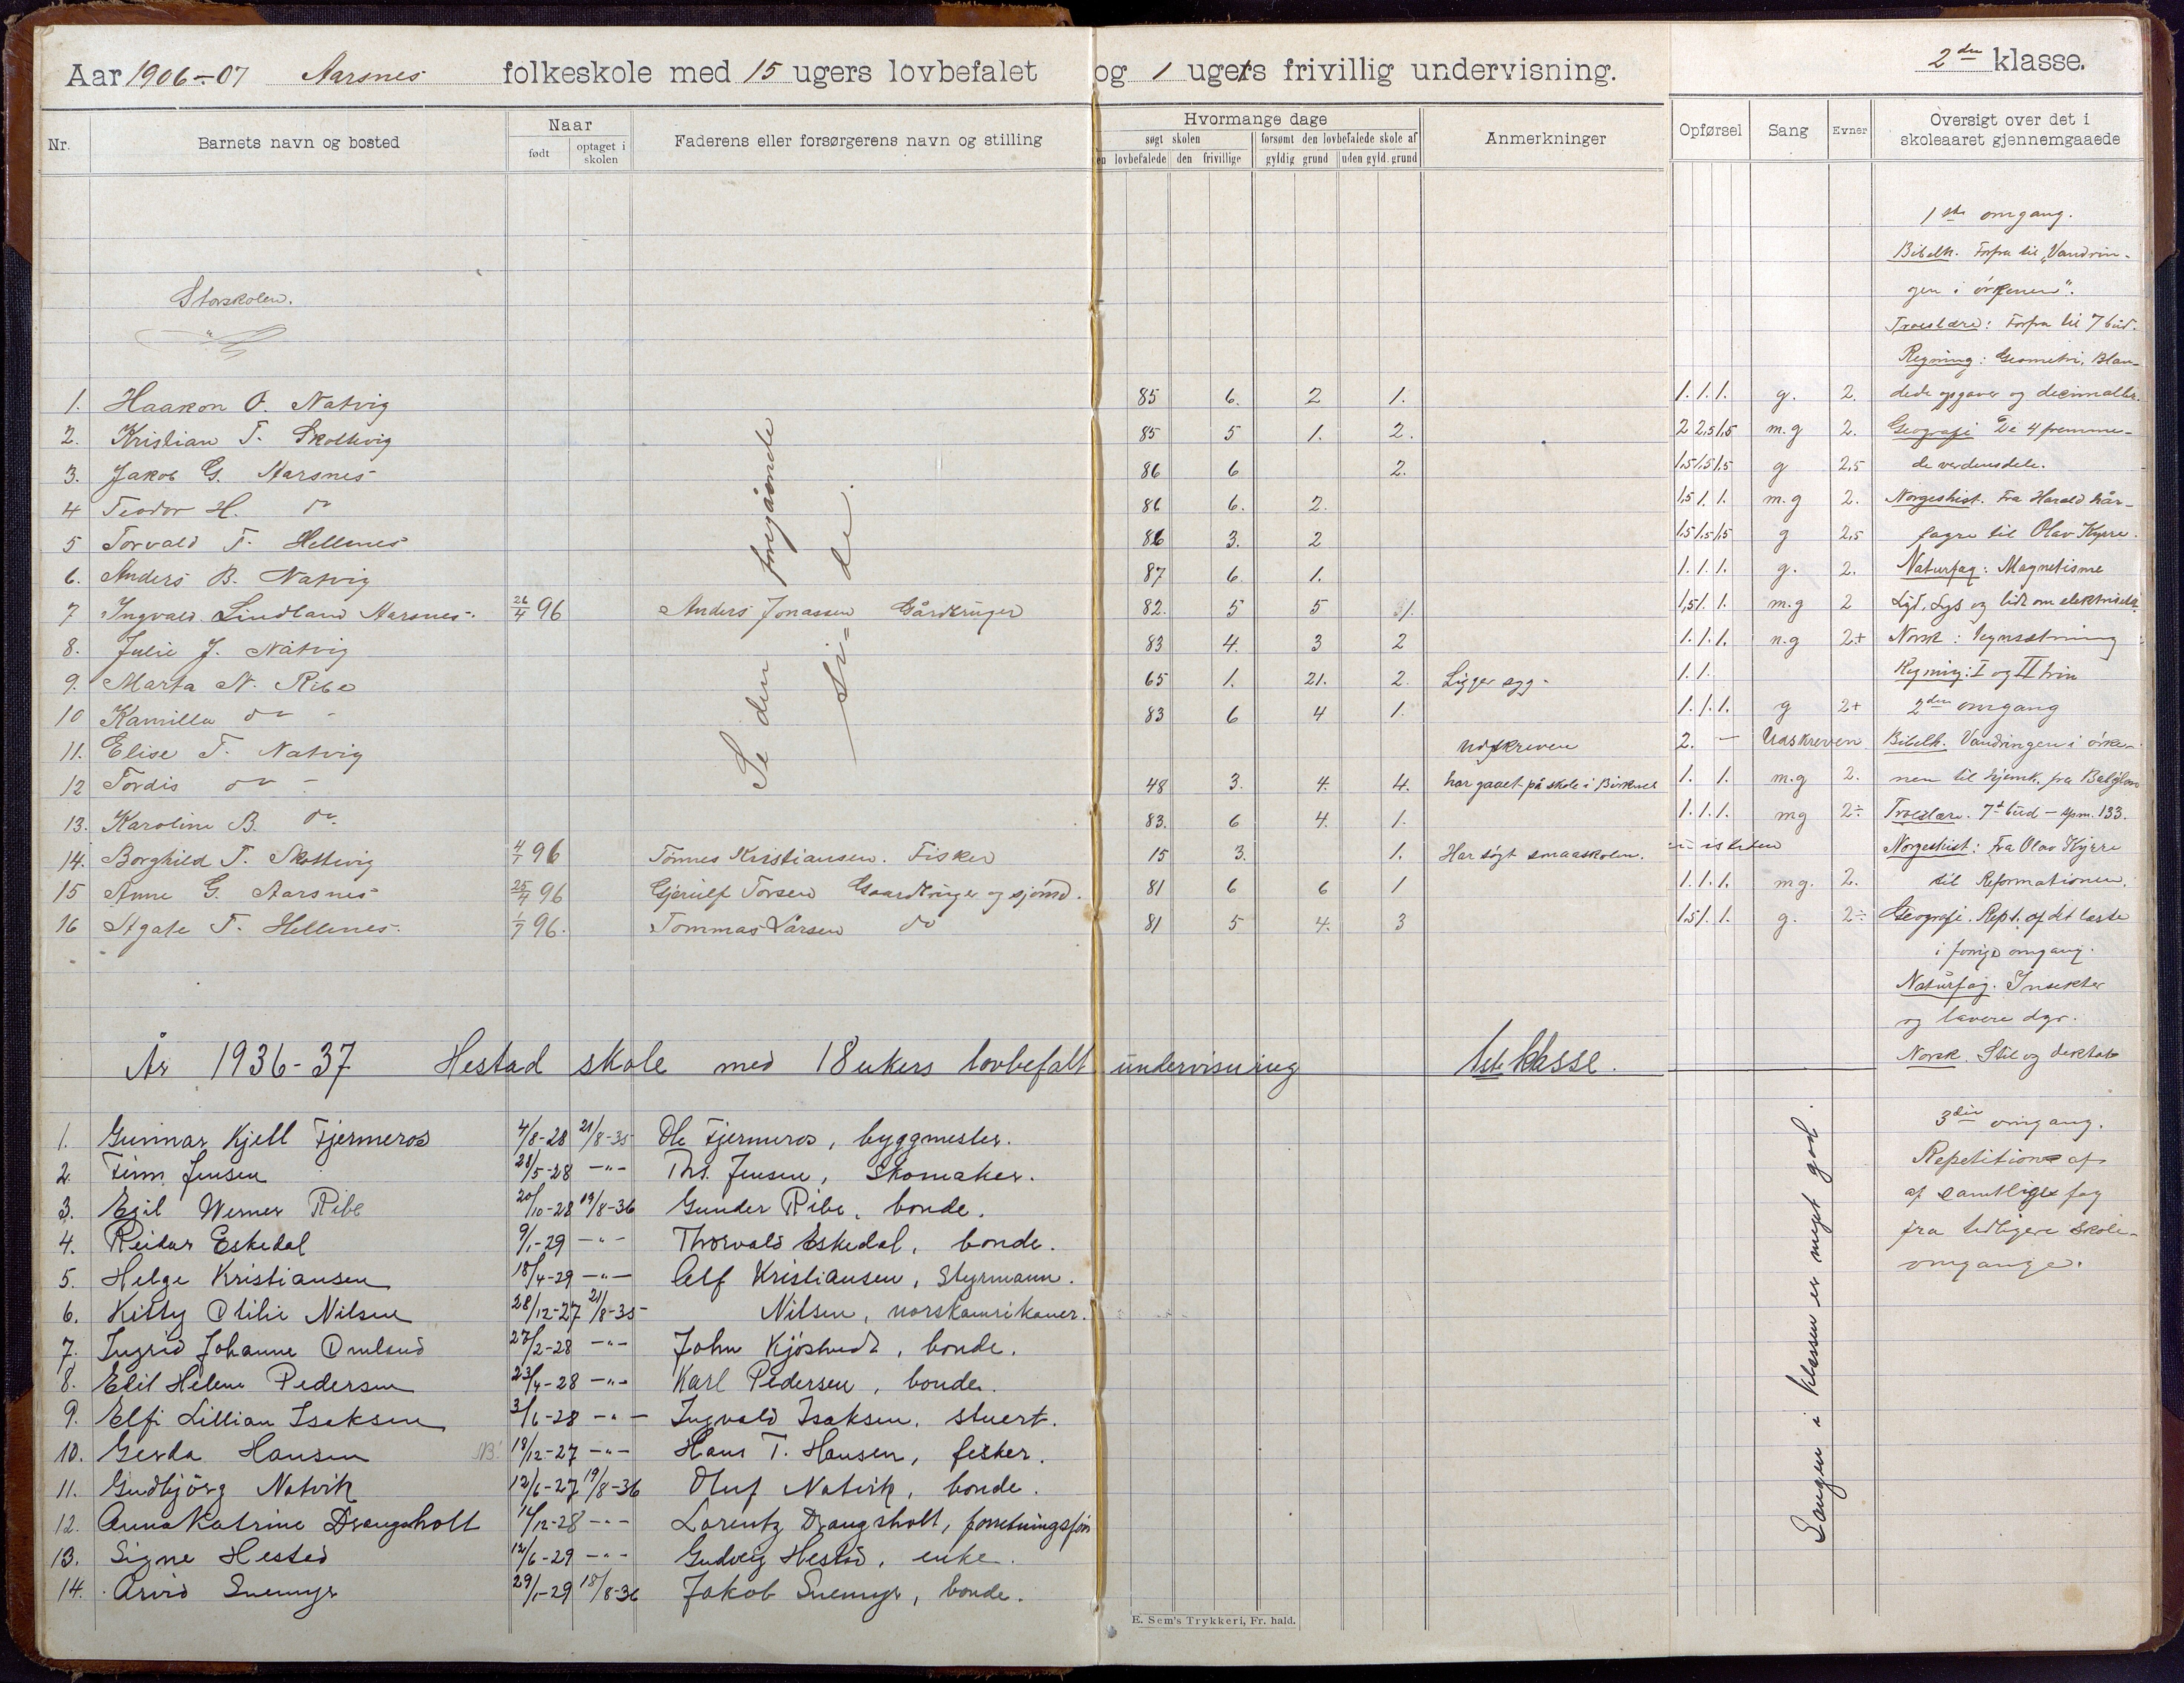 Aar 1906-07 Aarsnes folkeskole med 15 ugers lovbefalet og 1 ugers frivillig undervisning. 2den klasse.
Nr. Barnets navn og bosted Naar født optaget i skolen Faderens eller forsørgerens navn og stilling Hvormange dage søgt skolen den lovbefalede den frivillige forsømt den lovbefalede skole af gyldig grund uden gyld. grund Anmerkninger Opførsel Sang Evner Oversigt over det i skoleaaret gjennemgaaede
Storskolen.
Se den foregående side.
1. Haakon O. Natvig 85 6. 2 1. 1. 1. 1. g. 2.
2. Kristian T. Skottevig 85 5 1. 2. 2 2,5 1,5 m.g 2.
3. Jakob G. Aarsnes 86 6 2. 1,5 1,5 1,5 g 2,5
4 Teodor H. do 86 6. 2. 1,5 1. 1. m.g 2.
5 Torvald T. Hellenes 86 3. 2 1,5 1,5 1,5 g 2,5
6. Anders B. Natvig 87 6 1. 1. 1. 1. g. 2.
7 Ingvald Lindland Aarsnes. 26/4 96 Anders Jonassen Gårdbruger 82. 5 5 1. 1,5 1. 1. m.g 2
8. Julie J. Natvig 83 4. 3 2 1. 1. 1. n.g 2+
9. Marta N. Ribe 65 1. 21. 2. Ligger syg. 1. 1.
10 Kamilla do 83 6 4 1. 1. 1. 1. g 2+
11. Elise T. Natvig Udskreven 2. - Udskreven
12 Tordis do 48 3. 4. 4. har gaaet på skole i Birknes 1. 1. m.g 2.
13. Karoline B. do 83. 6 4. 1. 1. 1. 1. mg 2÷
14. Borghild T. Skottevig 4/7 96 Tønnes Kristiansen. Fisker 15 3. 1. Har søgt smaaskolen.
15 Anne G. Aarsnes 25/4 96 Gjerulf Torsen Gaardbruger og sjømd. 81 6 6 1 1. 1. 1. mg. 2.
16 Agate T. Hellenes. 1/7 96. Tommas Larsen do 81 5 4. 3 1,5 1. 1. g. 2÷
1ste omgang.
Bibelh. Forfra til "Vandrin-
gen i ørkenen".
Troeslære: Forfra til 7 bud.
Regning: Geometri, Blan-
dede opgaver og decimalbr.
Geografi De 4 fremme-
de verdensdele.
Norgeshist. Fra Harald hår-
fagre til Olav Kyrre.
Naturfag: Magnetisme
Lyd, Lys og lidt om elektricitet
Norsk: Tegnsætning
Regning: I og II trin
2den omgang
Bibelh. Vandringen i ørke-
nen til hjemk. fra Babylon
Troeslære. 7de bud - spm. 133.
Norgeshist: Fra Olav Kyrre
til Reformationen.
Geografi. Rept. af det læste
i forrige omgang.
Naturfag. Insekter
og lavere dyr.
Norsk. Stil og diktat
3die omgang.
Repetition af
af samtlige fag
fra tidligere skole-
omgange.
Sangen i klassen er meget god.
År 1936-37 Hestad skole med 18 ukers lovbefalt undervisning 1ste klasse.
1. Gunnar Kjell Fjermeros 4/8-28 21/8-35 Ole Fjermeros, byggmester.
2. Finn Jensen 28/5-28 -"- Ths. Jensen, Skomaker.
3. Egil Werner Ribe 20/10-28 19/8-36 Gunder Ribe, bonde.
4. Reidar Eskedal 9/1-29 -"- Thorvald Eskedal, bonde.
5. Helge Kristiansen 18/4-29 -"- Alf Kristiansen, Styrmann.
6. Kitty Otilie Nilsen 28/12-27 21/8-35 Nilsen, norskamerikaner.
7. Ingrid Johanne Omland 27/2-28 -"- John Kjøstvedt, bonde.
8. Edil Helene Pedersen 23/4-28 -"- Karl Pedersen, bonde.
9. Elfi Lillian Isaksen 3/6-28 -"- Ingvald Isaksen, stuert.
10. Gerda Hansen 18/12-27 -"- Hans T. Hansen, fisker.
11. Gudbjörg Natvik 12/6-27 19/8-36 Oluf Natvik, bonde.
12. Anna Katrine Drangsholt 14/12-28 -"- Lorentz Drangsholt, forretningsfør
13. Signe Hestad 12/6-29 -"- Gudveig Hestad, enke.
14. Arvid Suemyr 29/1-29 18/8-36 Jakob Suemyr, bonde.
E. Sem's Trykkeri, Fr. hald.